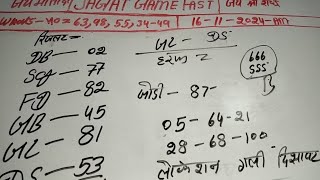 JAGAT GAME FAST
WANTS-NO=63,98,55,34-49 16-11-2024-
DB-02
SG-77
FD-82
GB-45
GL-81
DS-53
GL-DS
हरूफ 2
666
555
जोडी-87-
05-64-21
28-68-100-
लोकेशन गली दिसावर